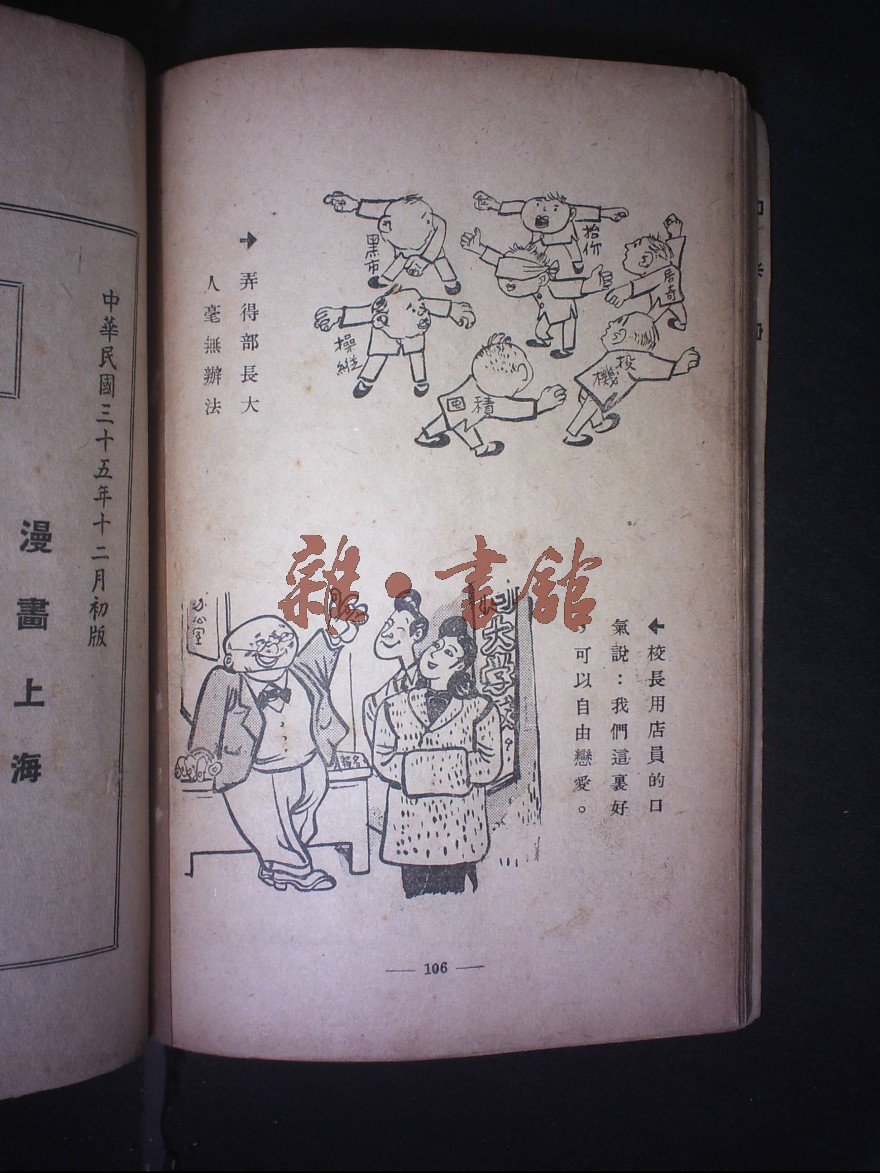 弄得部長大
人毫無辦法
黑市
抬价
居奇
操縱
囤積
投機
校長用店員的口
氣說：我們這裏好
，可以自由戀愛。
办公室
大学
報名
— 106 —
中華民國三十五年十二月初版
漫畫上海
雜·書舘